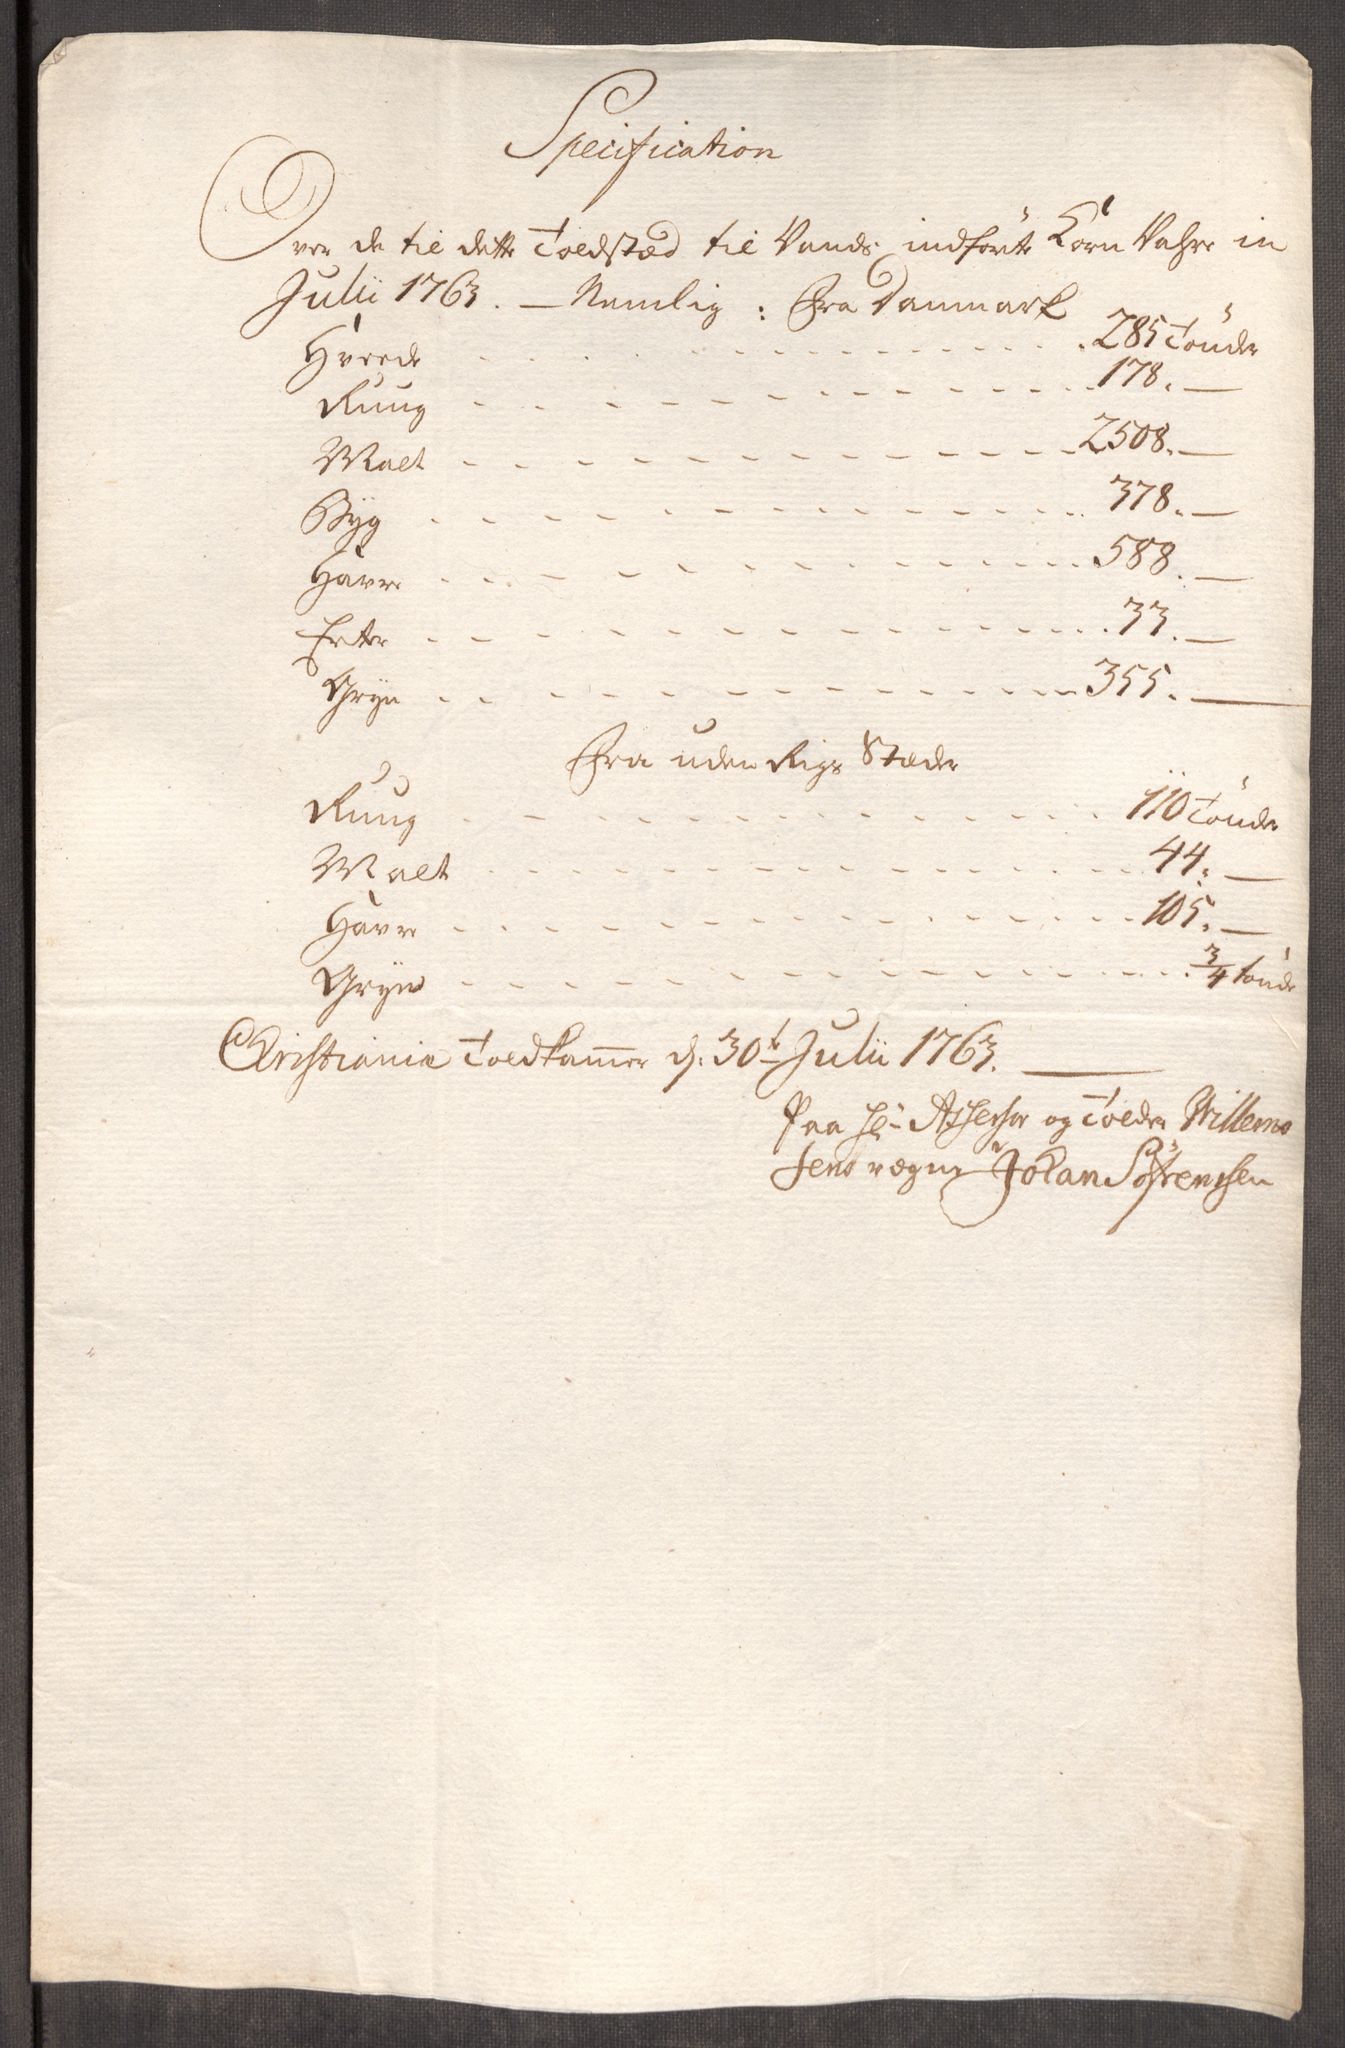 Specification
Over de til dette Toldsted til Vands indförte Korn Vahre in
Julii 1763. — Nemlig: fra Danmark
Hveede - - - 285 Tönder
Ruug - - - 178. —
Malt - - - 2508. —
Byg - - - 378. —
Havre - - - 588. —
Erter - - - 33. —
Gryn - - - 355. —
Fra uden Rigs Stæder
Ruug - - - 110 Tönder
Malt - - - 44. —
Havre - - - 105. —
Gryn - - - 3/4 tönde
Christiania Toldkammer d. 30t Julii 1763. —
Paa Hr Assessor og Tolder Willem
sens vegne Johan Sörensen